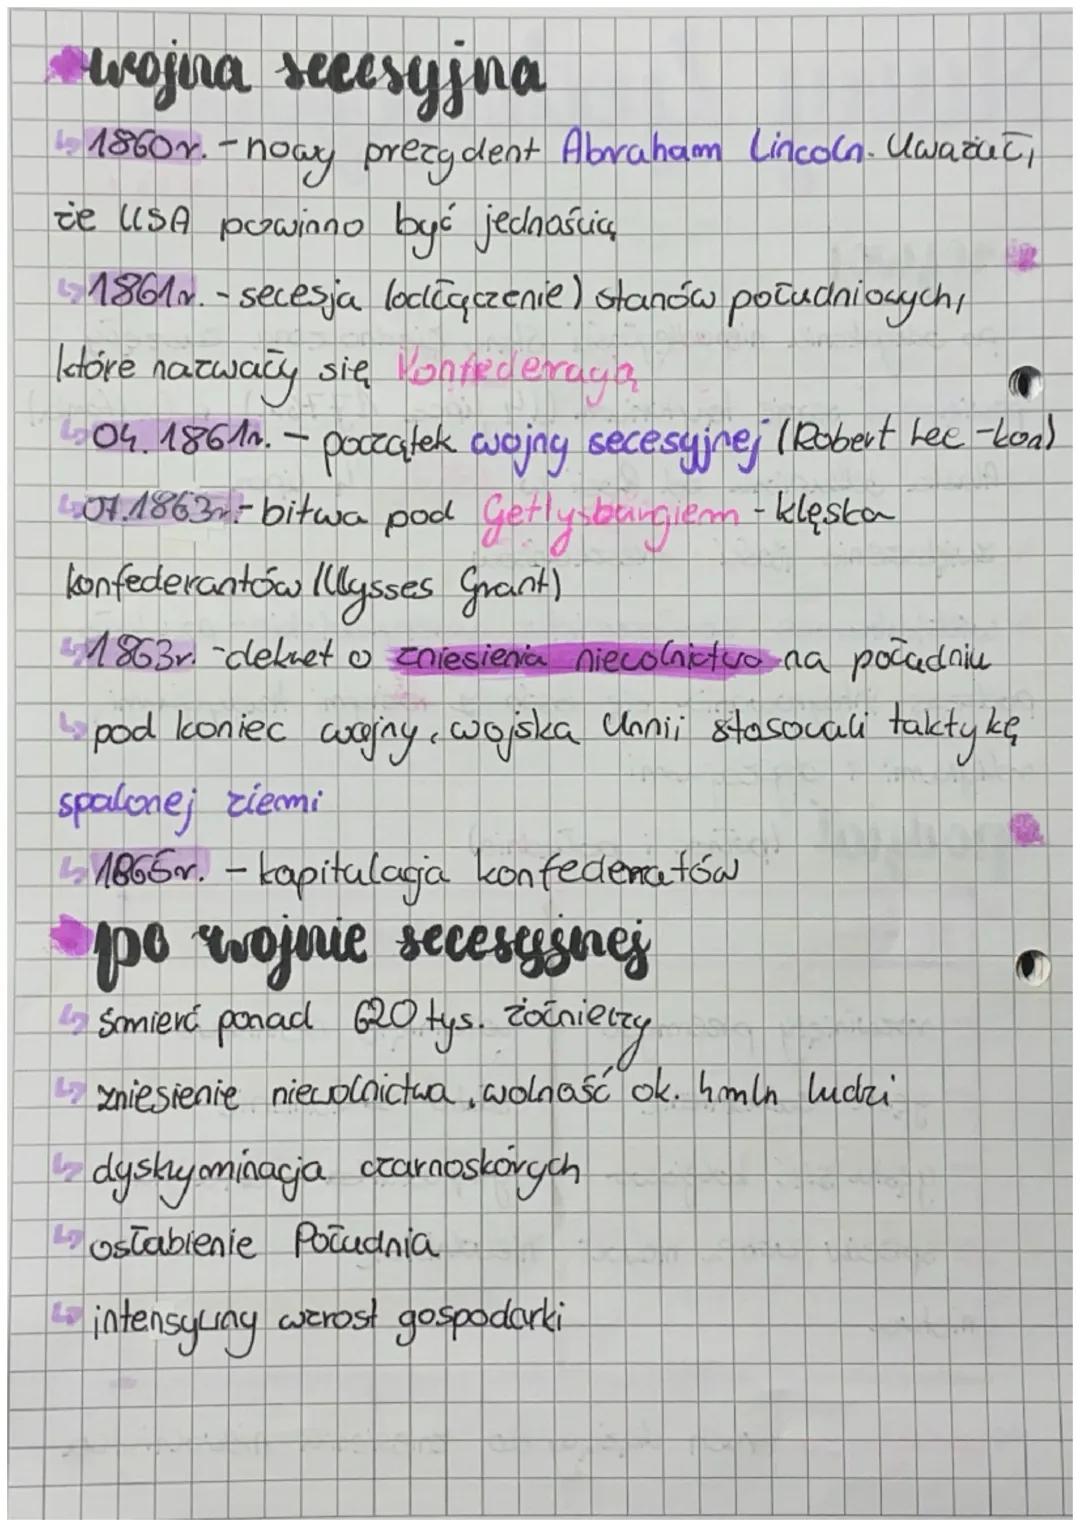 wojna secesyjna
↳ 1860r. - nowy prezydent Abraham Lincoln. Uważał,
że USA powinno być jednością
↳ 1861r. - secesja (odłączenie) stanów południowych,
które nazwały się Konfederacją
↳ 04. 1861r. - początek wojny secesyjnej (Robert Lee - kon)
↳ 07.1863r. - bitwa pod Gettysburgiem - klęska
konfederantów (Ulysses Grant)
↳ 1863r. - dekret o zniesienia niewolnictwo na południu
↳ pod koniec wojny, wojska Unnii stosowali taktykę
spalonej ziemi
↳ 1865r. - kapitulacja konfederatów
po wojnie secesyjnej
↳ śmierć ponad 620 tys. żołnierzy
↳ zniesienie niewolnictwa, wolność ok. 4mln ludzi
↳ dyskryminacja czarnoskórych
↳ osłabienie Południa
↳ intensywny wzrost gospodarki